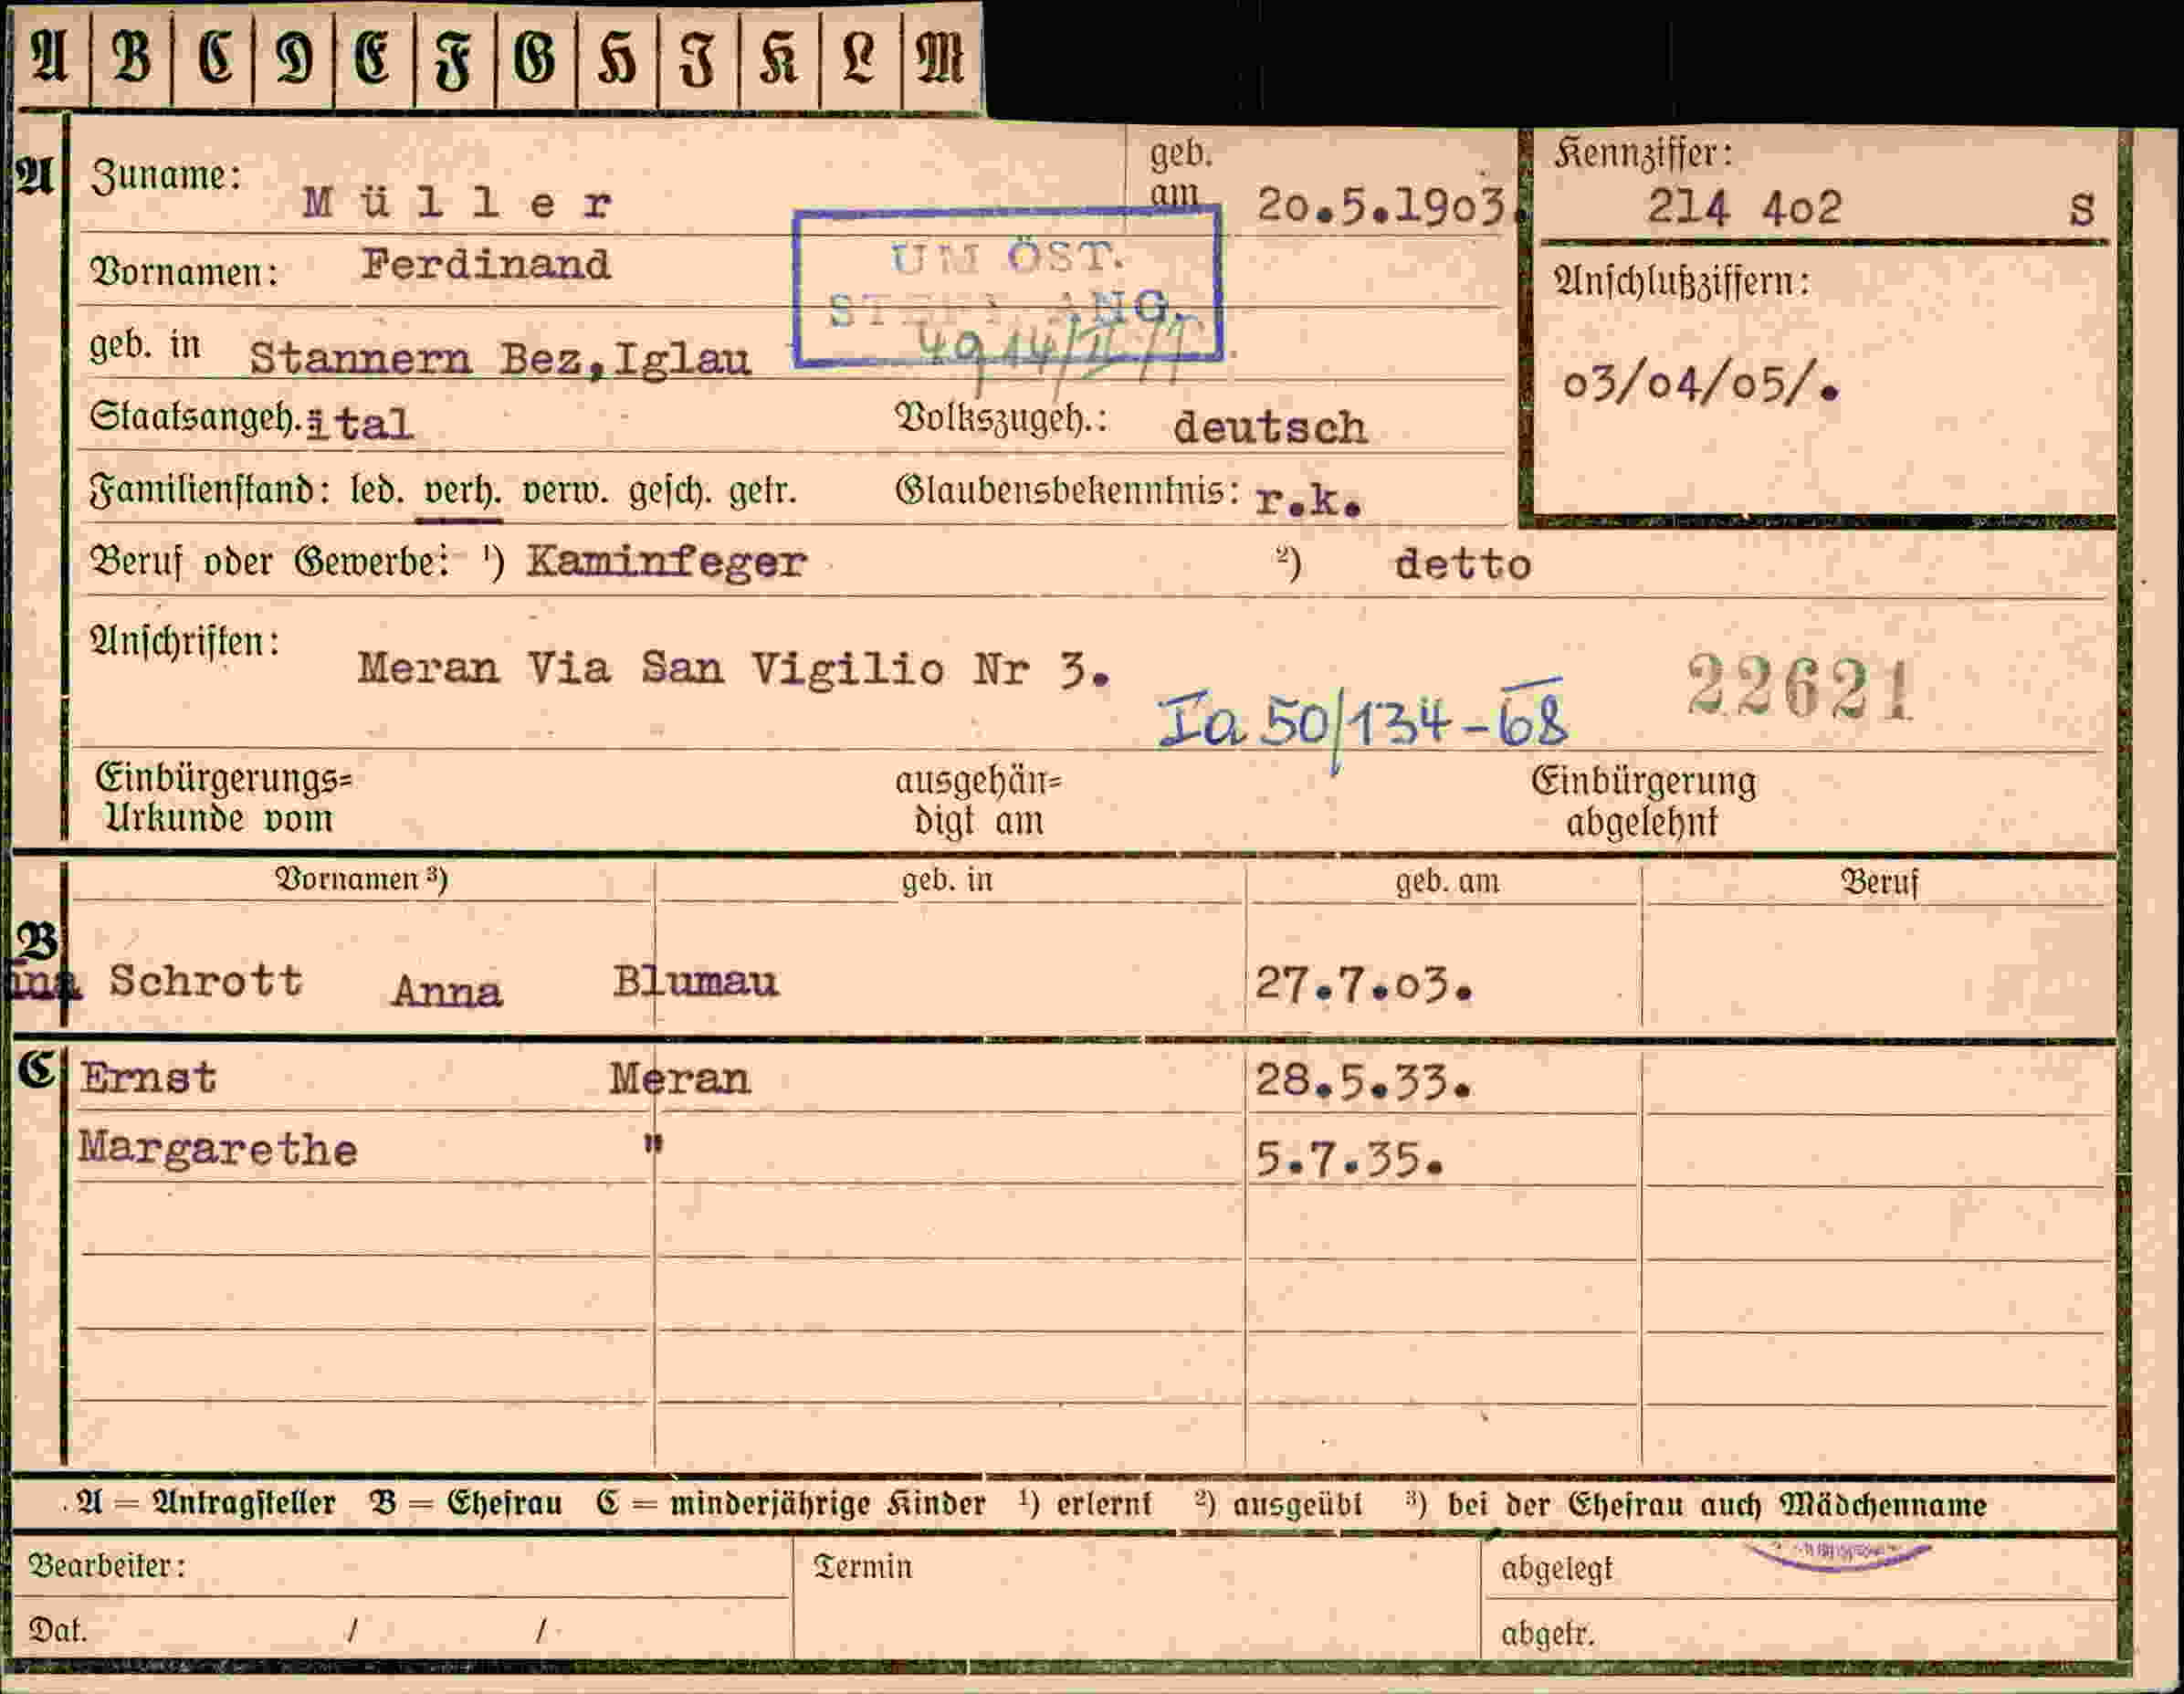 A B C D E F G H I K L M
A Zuname: Müller geb. am 20.5.1903. Kennziffer: 214 402 S
Vornamen: Ferdinand
UM ÖST.
ANG.
geb. in Stannern Bez,Iglau
Anschlußziffern:
03/04/05/.
Staatsangeh. ital Volkszugeh.: deutsch
Familienstand: led. verh. verw. gesch. getr. Glaubensbekenntnis: r.k.
Beruf oder Gewerbe: ¹) Kaminfeger ²) detto
Anschriften: Meran Via San Vigilio Nr 3.
Ia 50/134-68 22621
Einbürgerungs= ausgehän= Einbürgerung
Urkunde vom digt am abgelehnt
Vornamen ³) geb. in geb. am Beruf
B
Schrott Anna Blumau 27.7.03.
C Ernst Meran 28.5.33.
Margarethe " 5.7.35.
A = Antragsteller B = Ehefrau C = minderjährige Kinder ¹) erlernt ²) ausgeübt ³) bei der Ehefrau auch Mädchenname
Bearbeiter: Termin abgelegt
Dat. / / abgetr.